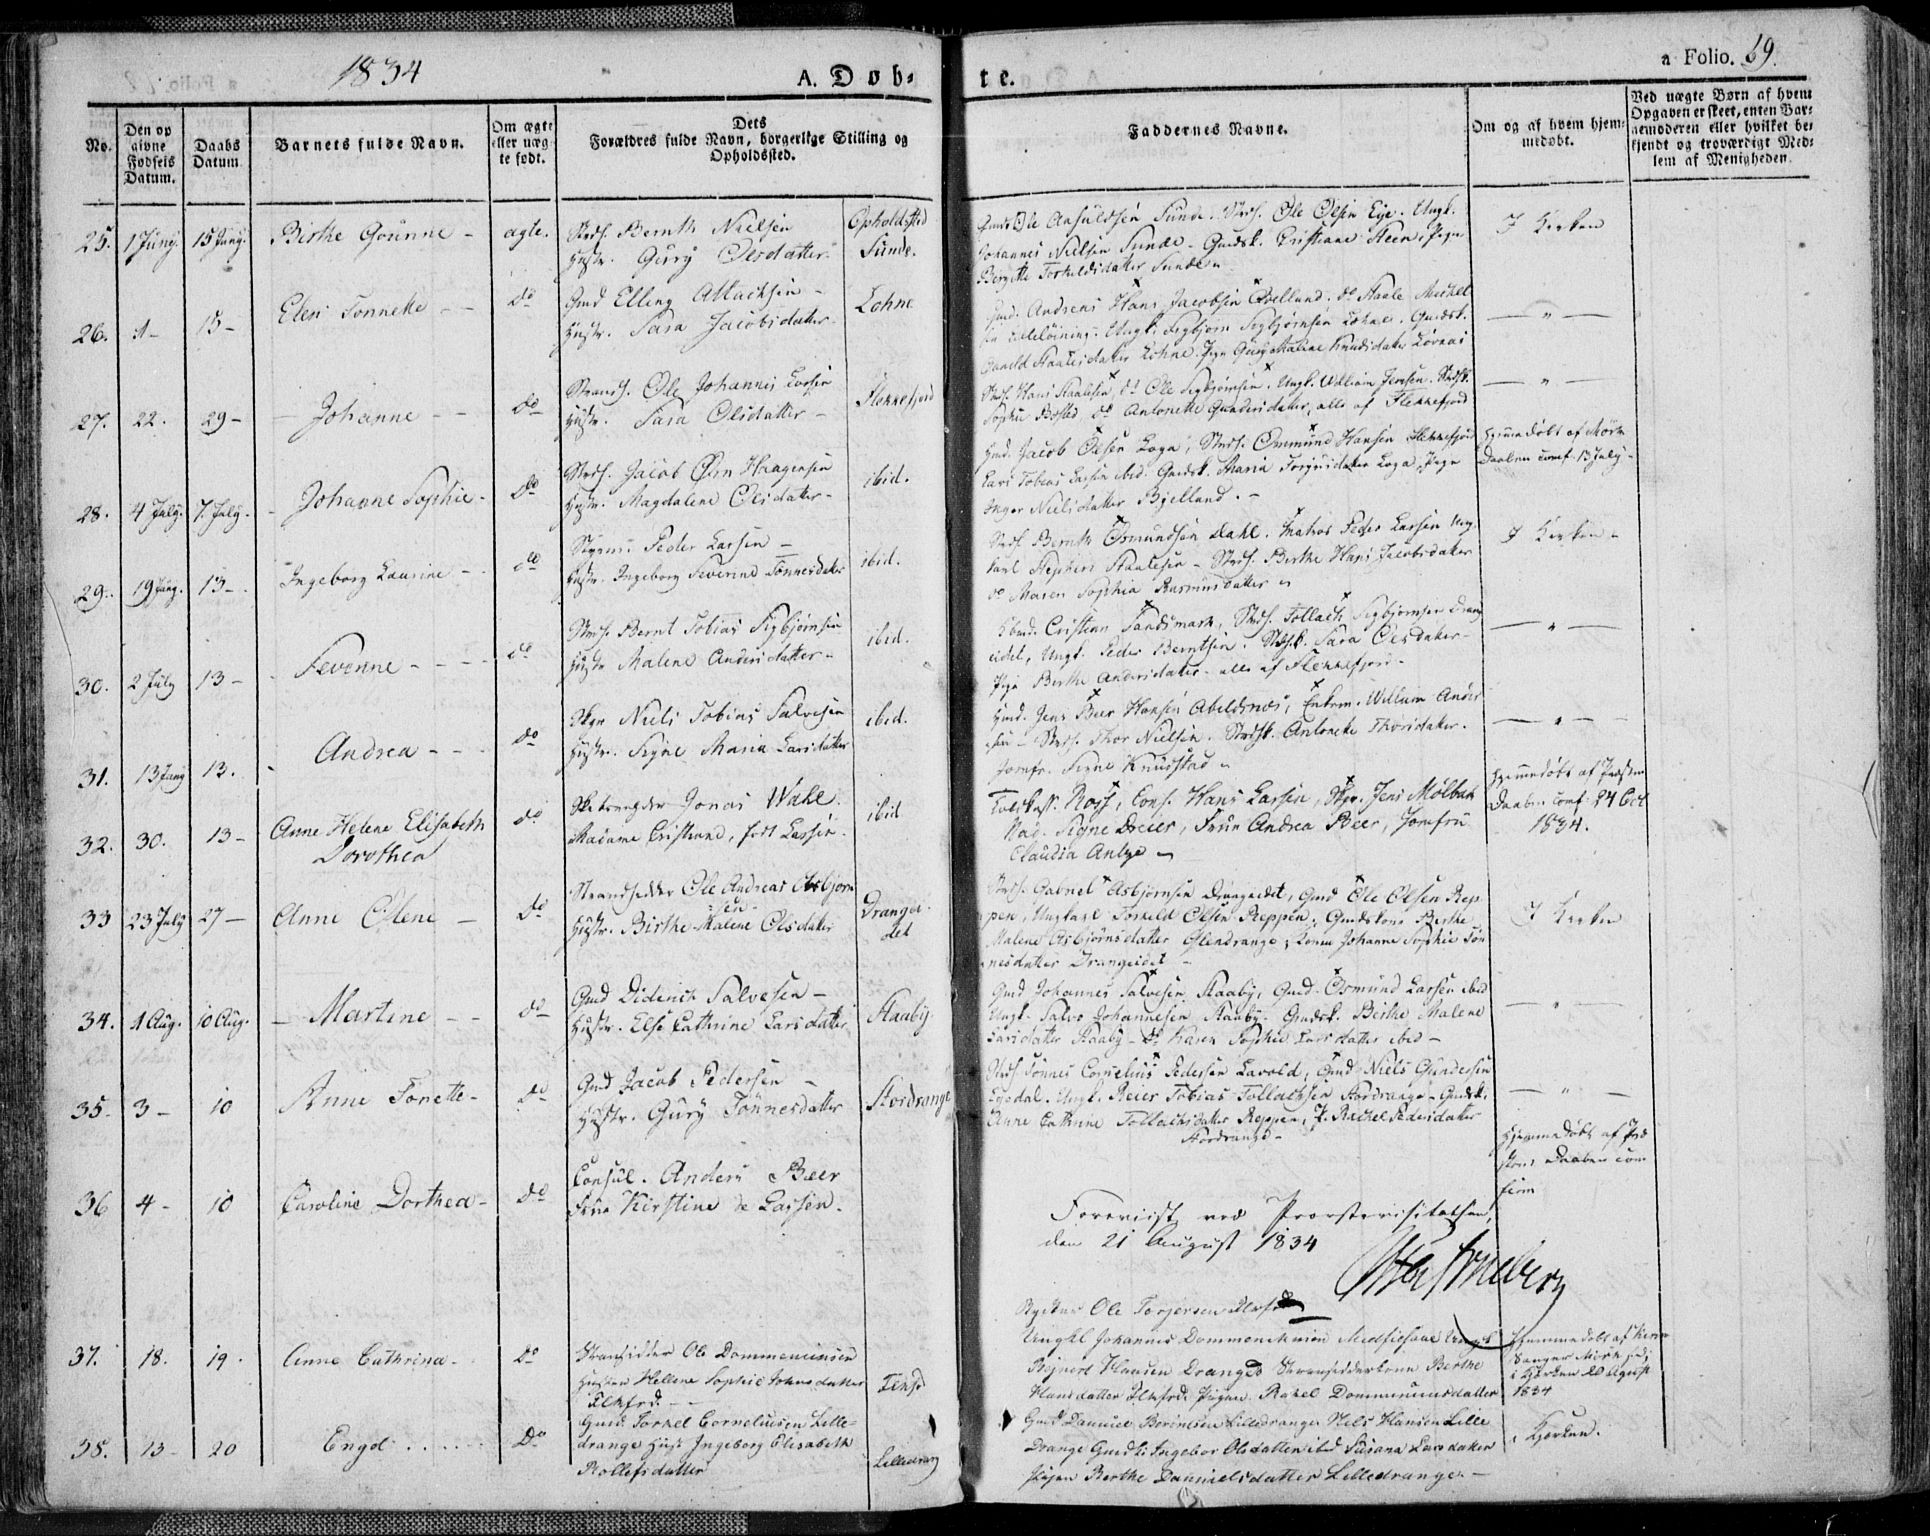 1834
A. Døb-
te.
a Folio. 69.
No.
Den op
givne
Fødsels
Datum.
Daabs
Datum
Barnets fulde Navn.
Om ægte
eller uæg-
te født.
Dets
Forældres fulde Navn, borgerlige Stilling og
Opholdssted.
Faddernes Navne.
Om og af hvem hjem-
medøbt.
Ved uægte Børn af hvem
Opgaven er skeet, enten Bar-
nemoderen eller hvilket be-
kjendt og troværdigt Med-
lem af Menigheden.
25. 1 Juny. 15 Juny. Birthe Gounne - ægte.
Strds. Bernth Nielsen
Hustr. Gury Olsdatter
Opholdssted
Sunde.
Gmd Ole Aasuldsen Sunde. Strds. Ole Olsen Eye. Ungk.
Johannes Nielsen Sunde - Gmdsk. Cristiane Steen, Pige
Bergitte Torkildsdatter Sunde
I Kirken
26. 1 - 15 - Elen Tonnette - do
Gmd Elling Attachsen -
Hustr. Sara Jacobsdatter
Lohne
Gmd. Andreas Hans Jacobsen Qvelland. do Staale Michel
sen . Ungk. Sigbjørn Sigbjørnsen Lohne. Gmdsk.
Staalesdatter Lohne. Pige Gury Malene Knudsdatter
- " -
27. 22. 29 - Johanne - - do
Strands. Ole Johannes Larsen
Hustr. Sara Olsdatter -
Flekkefjord
Strds. Hans Staalesen, do Ole Sigbjørnsen. Ungk. William Jensen. Strdsk.
Sophie Bosted, do Antonette Gundersdatter, alle af Flekkefjord
- " -
28. 4 July. 7 July. Johanne Sophie - do
Strds. Jacob Ørn Haagensen
Hustr. Magdalene Olsdatter -
ibid.
Gmd. Jacob Olsen Loga, Strds. Osmund Hansen Flekkefjord
Karl Tobias Larsen ibid. Gmdsk. Maria Torgersdatter Loga, Pige
Inger Nielsdatter Bjelland. -
Hjemmedøbt af Mørk
Daaben conf. 13 July -
29. 19 Juny. 13 - Ingeborg Laurine - do
Styrm. Peder Larsen -
Hustr. Ingeborg Severine Tønnesdatter
ibid.
Strds. Bernth Osmundsen Dahl. Matros Peder Larsen Ung-
karl Stephen Staalesen - Strds. Birthe Hans Jacobsdatter
do Maren Sophia Rasmusdatter
I Kirken -
30. 2 July 13 - Severine - - - do
Strds. Bernt Tobias Sigbjørnsen
Hustr. Malene Andersdatter -
ibid.
Cristian Sandsmark, Strds. Tollach Sigbjørnsen Drang
eidet, Ungk. Peder Berntsen. Strdsk. Sara Olsdatter -
Pige Berthe Andersdatter - alle af Flekkefjord -
- " -
31. 13 Juny 13. Andrea - - do
Skpr Niels Tobias Salvesen
Hustr. Signe Maria Larsdatter
ibid.
Gmd. Jens Beer Hansen Abelsnes, Enkem. William Ander
sen - Strds. Thor Nielsen. Strdsk. Antonette Thorsdatter.
Jomfr. Signe Knudstad
- " -
32. 30. 13 - Anne Helene Elisabeth
Dorothea do
Jonas Wahl
Madame Cristiane, født Larsen.
ibid
Toldkass. Ross, Cons. Hans Larsen, Skpr. Jens Mølbak
Mad. Signe Dreier, Frue Andrea Beer, Jomfru
Claudia Anlye
Hjemmedøbt af Præsten
Daaben conf. 24 Oct
1834.
33 23 July 27 - Anne Olene - do
Strandsidder Ole Andreas Asbjørn
sen -
Hustr. Birthe Malene Olsdatter
Drangei-
det
Strds. Gabriel Asbjørnsen Drangeidet, Gmd Ole Olsen Rep
pen, Ungkarl Torkeld Olsen Reppen, Gmdskone Berthe
Malene Asbjørnsdatter Østendrange, Kone Johanne Sophie Tøn
nesdatter Drangeidet -
I Kirken
34. 1 Aug. 10 Aug. - Martine - - do
Gmd Diderich Salvesen -
Hustr. Else Cathrine Larsdatter
Staaby
Gmd Johannes Salvesen Staaby, Gmd Osmund Larsen ibid
Ungk. Salve Johannesen Staaby. Gmdsk. Birthe Malene
Larsdatter Staaby - do Karen Sophie Larsdatter ibid -
- " -
35. 3 - 10 Anne Tonette - do
Gmd Jacob Pedersen -
Hustr. Gury Tønnesdatter
Stordrange
Strds Tønnes Cornelius Pedersen Lavold, Gmd Niels Gundersen
Eyedal. Ungk. Reier Tobias Tollachsen Stordrange - Gmdsk.
Anne Cathrine Tollachsdatter Reppen, P. Rachel Pedersdatter
Stordrange -
- " -
36 4 - 10 Caroline Dorthea - do
Consul. Anders Beer
Frue Kirstine de Lassen.
Hjemmedøbt af Præ
sten, Daaben con
firm
Foreviist ved Provstevisitatsen,
den 21 August 1834
37. 18. 19. Anne Cathrina - Do
Strandsidder Ole Dommenensen
Hustru Hellene Sophie Johnsdatter
Flkfrd. - -
Flkfd
Rygter Ole Torjersen Flkfrd
Ungkl Johannes Dommenichsen Ungk
Reinert Hansen Dranged Strandsidderkone Berthe
Hansdatter Flkfrd. Pigen Rakel Dommenensdatter
Hjemmedøbt af Kirke
Sanger Mørk
i Kirken 20 August
1834
38. 13 - 20 Engel . . . . . . Do
Gmd Torkel Corneliusen Lille-
drange Hust Ingeborg Elisabeth
Rollefsdatter
Lilledrang
Gmd Daniel Berintsen Lilledrange Niels Hansen Lille
Drange Gmdk Ingebor Olsdatter ibid Susana Larsdatter
Pigen Berthe Danielsdatter Lilledrange. -
i Kjerken.